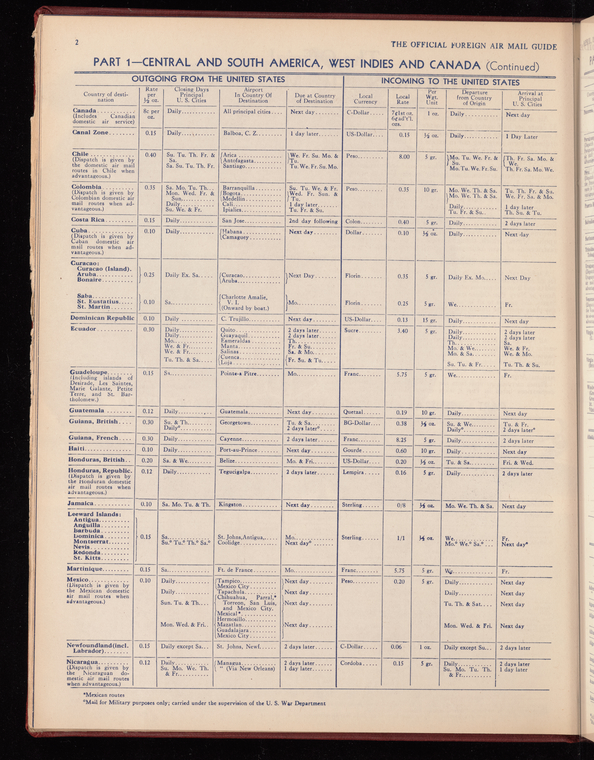 2
THE OFFICIAL FOREIGN AIR MAIL GUIDE
PART 1—CENTRAL AND SOUTH AMERICA, WEST INDIES AND CANADA (Continued)
OUTGOING FROM THE UNITED STATES
INCOMING TO THE UNITED STATES
Country of destination
Rate per ½ oz.
Closing Days Principal U. S. Cities
Airport In Country Of Destination
Due at Country of Destination
Local Currency
Local Rate
Per Wgt. Unit
Departure from Country of Origin
Arrival at Principal U. S. Cities
Canada (Includes Canadian domestic air service) 8c per oz. Daily All principal cities Next day C-Dollar 1 oz. Daily Next day
Canal Zone 0.15 Daily Balboa, C. Z. 1 day later US-Dollar 0.15 ½ oz. Daily 1 Day Later
Chile 0.40 Su. Tu. Th. Fr. & Sa. Arica We. Fr. Su. Mo. & Tu. Peso 8.00 5 gr. Mo. Tu. We. Fr. & Su. Th. Fr. Sa. Mo. & We.
(Dispatch is given by the domestic air mail routes in Chile when advantageous.)
Antofagasta
Su. Tu. Th. Fr. Santiago Tu. We. Fr. Su. Mo. Mo. Tu. We. Fr. Su. Th. Fr. Sa. Mo. We.
Colombia 0.35 Sa. Mo. Tu. Th. Barranquilla Su. Tu. We. & Fr. Peso 0.35 10 gr. Mo. We. Th. & Sa. Tu. Th. Fr. & Sa.
(Dispatch is given by Colombian domestic air mail routes when advantageous.)
Mon. Wed. Fr. & Sun. Bogota Medellin Wed. Fr. Sun. & Tu. Mo. We. Th. & Sa. We. Fr. Sa. & Mo.
Daily Cali 1 day later Daily 1 day later
Su. We. & Fr. Ipiales Tu. Fr. & Su. Tu. Fr. & Su. Th. Su. & Tu.
Costa Rica 0.15 Daily San Jose 2nd day following Colon 0.40 5 gr. Daily 2 days later
Cuba 0.10 Daily Habana Camaguey Next day Dollar 0.10 ½ oz. Daily Next day
(Dispatch is given by Cuban domestic air mail routes when advantageous.)
Curacao:
Curacao (Island).
Aruba 0.25 Daily Ex. Sa. Curacao Aruba Next Day Florin 0.35 5 gr. Daily Ex. Mo. Next Day
Bonaire
Saba
St. Eustatius 0.10 Sa. Charlotte Amalie, V. I. (Onward by boat.) Mo. Florin 0.25 5 gr. We. Fr.
St. Martin
Dominican Republic 0.10 Daily C. Trujillo Next day US-Dollar 0.13 15 gr. Daily Next day
Ecuador 0.30 Daily Quito 2 days later Sucre 3.40 5 gr. Daily 2 days later
Daily Guayaquil 2 days later Daily 2 days later
Mo. Esmeraldas Th. Th. Sa.
We. & Fr. Manta Fr. & Su. Mo. & We. We. & Fr.
We. & Fr. Salinas Sa. & Mo. Mo. & Sa. We. & Mo.
Tu. Th. & Sa. Cuenca Loja Fr. Su. & Tu. Su. Tu. & Fr. Tu. Th. & Su.
Guadeloupe 0.15 Sa. Pointe-a Pitre Mo. Franc 5.75 5 gr. We. Fr.
(Including islands of Desirade, Les Saintes, Marie Galante, Petite Terre, and St. Bartholomew.)
Guatemala 0.12 Daily Guatemala Next day Quetzal 0.19 10 gr. Daily Next day
Guiana, British 0.30 Su. & Th. Georgetown Tu. & Sa. BG-Dollar 0.38 ½ oz. Su. & We. Tu. & Fr.
Daily* 2 days later* Daily* 2 days later*
Guiana, French 0.30 Daily Cayenne 2 days later Franc 8.25 5 gr. Daily 2 days later
Haiti 0.10 Daily Port-au-Prince Next day Gourde 0.60 10 gr. Daily Next day
Honduras, British 0.20 Sa. & We. Belize Mo. & Fri. US-Dollar 0.20 ½ oz. Tu. & Sa. Fri. & Wed.
Honduras, Republic 0.12 Daily Tegucigalpa 2 days later Lempira 0.16 5 gr. Daily 2 days later
(Dispatch is given by the Honduras domestic air mail routes when advantageous.)
Jamaica 0.10 Sa. Mo. Tu. & Th. Kingston Next day Sterling 0/8 ½ oz. Mo. We. Th. & Sa. Next day
Leeward Islands:
Antigua
Anguilla
Barbuda
Dominica 0.15 Sa. St. Johns, Antigua Mo. Sterling 1/1 ½ oz. We. Fr.
Montserrat Su.* Tu.* Th.* Sa.* Coolidge Next day* Mo.* We.* Su.* Next day*
Nevis
Redonda
St. Kitts
Martinique 0.15 Sa. Ft. de France Mo. Franc 5.75 5 gr. We. Fr.
Mexico 0.10 Daily Tampico Mexico City Next day Peso 0.20 5 gr. Daily Next day
(Dispatch is given by the Mexican domestic air mail routes when advantageous.)
Daily Tapachula Next day Daily Next day
Sun. Tu. & Th. Chihuahua, Parral,* Torreon, San Luis, and Mexico City. Next day Tu. Th. & Sat. Next day
Mexicali*
Hermosillo
Mon. Wed. & Fri. Mazatlan Next day Mon. Wed. & Fri. Next day
Guadalajara
Mexico City
Newfoundland (incl. Labrador) 0.15 Daily except Sa. St. Johns, Newf. 2 days later C-Dollar 0.06 1 oz. Daily except Su. 2 days later
Nicaragua 0.12 Daily Managua 2 days later Cordoba 0.15 5 gr. Daily 2 days later
(Dispatch is given by the Nicaraguan domestic air mail routes when advantageous.)
Su. Mo. We. Th. & Fr. " (Via New Orleans) 1 day later Su. Mo. Tu. Th. & Fr. 1 day later
*Mexican routes
*Mail for Military purposes only; carried under the supervision of the U. S. War Department